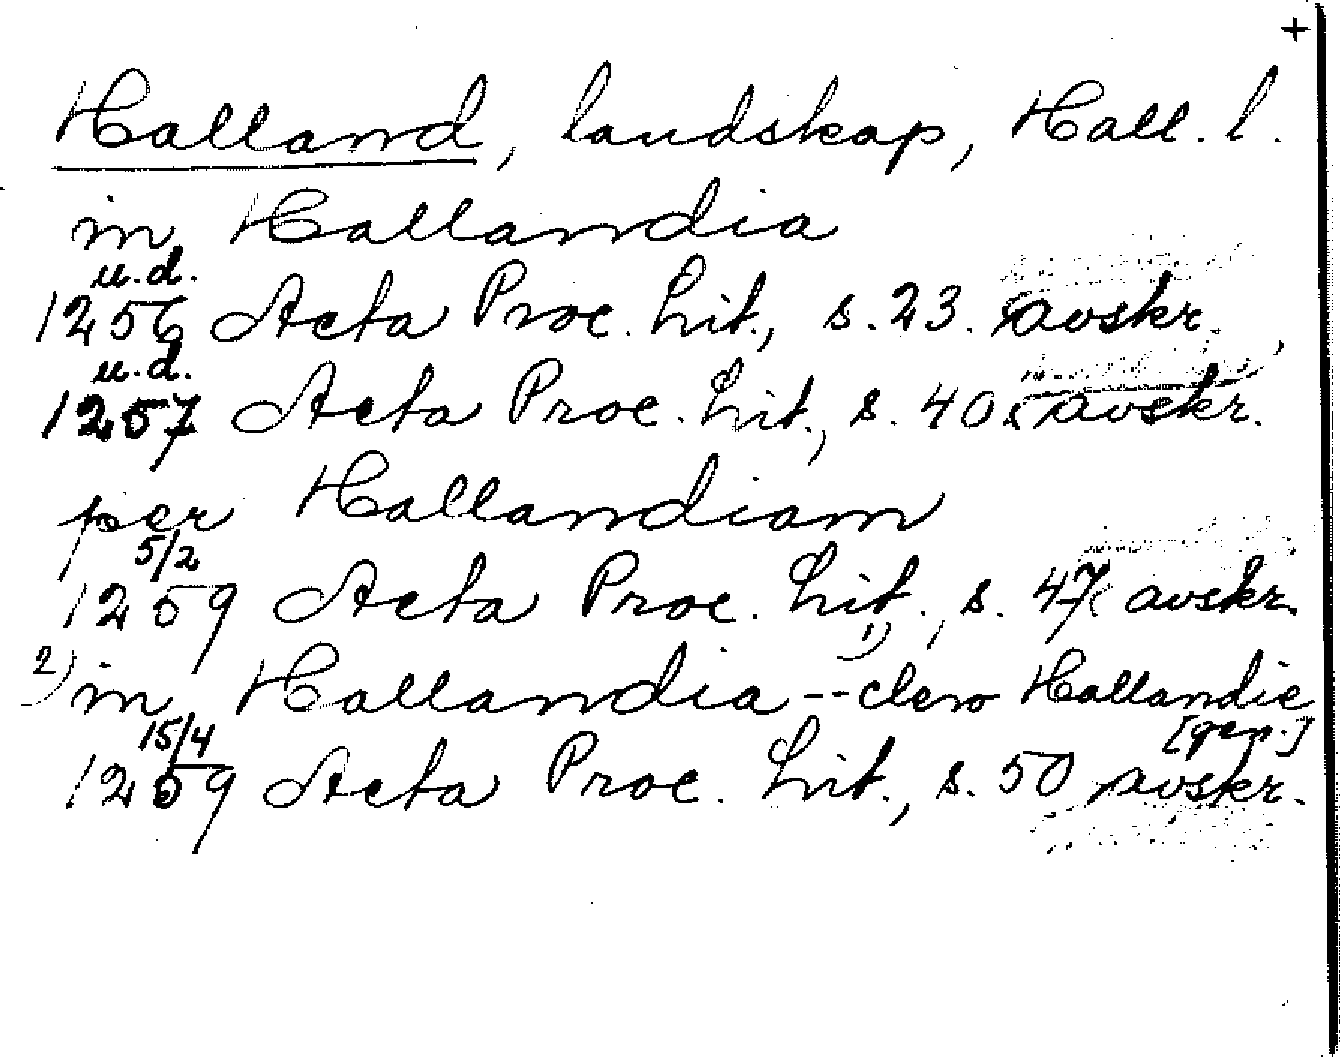 +
Halland, landskap, Hall. l.
in Hallandia
u.d.
1256 Acta Proc. Lit., s. 23. avskr.
u.d.
1257 Acta Proc. Lit., s. 40 avskr.
per Hallandiam
5/2
1259 Acta Proc. Lit., s. 47 avskr.
2) in Hallandia -- 1) clero Hallandie
15/4 [gen.]
1259 Acta Proc. Lit., s. 50 avskr.